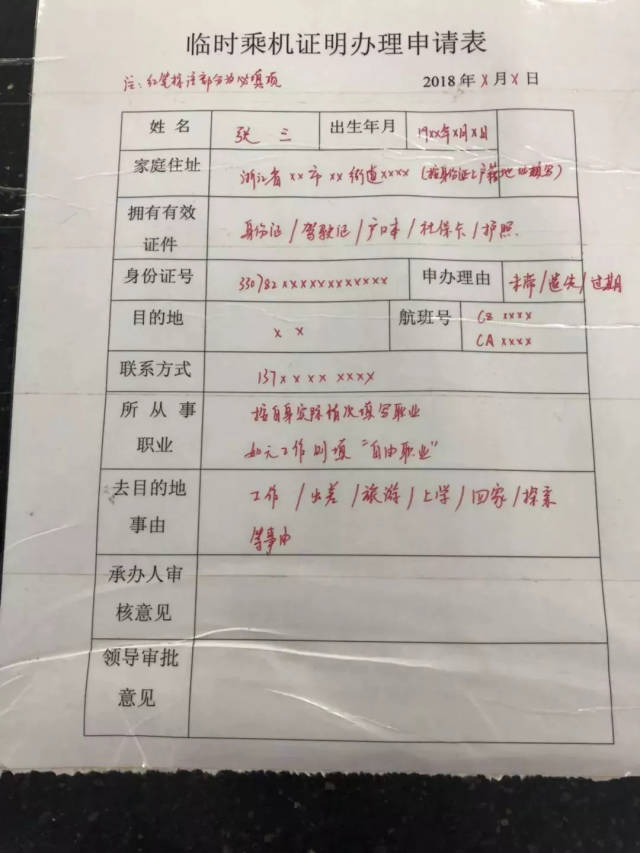 临时乘机证明办理申请表
注：红笔标注部分为必填项
2018年X月X日
姓名 张三 出生年月 19xx年x月x日
家庭住址 浙江省xx市xx街道xxxx（按身份证上户籍地址填写）
拥有有效
证件
身份证/驾驶证/户口本/社保卡/护照
身份证号 330782xxxxxxxxxxxx 申办理由 未带/遗失/过期
目的地 x x 航班号 CZ xxxx
CA xxxx
联系方式 137x xxx xxxx
所从事
职业
按自身实际情况填写职业
如无工作则填“自由职业”
去目的地
事由
工作/出差/旅游/上学/回家/探亲
等事由
承办人审
核意见
领导审批
意见